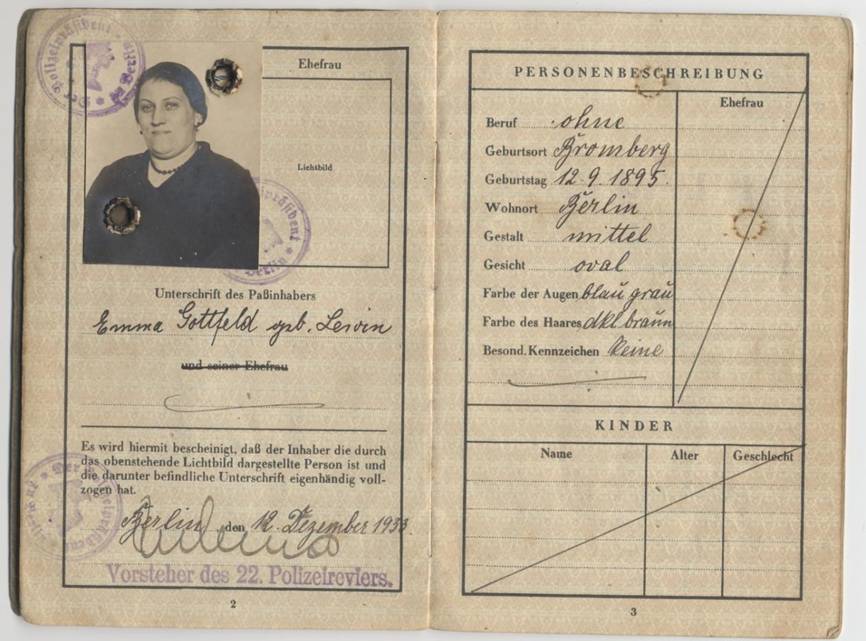 Polizeipräsident in Berlin
Ehefrau
Lichtbild
Polizeipräsident
Berlin
Unterschrift des Paßinhabers
Emma Gottfeld geb. Lewin
und seiner Ehefrau
Es wird hiermit bescheinigt, daß der Inhaber die durch
das obenstehende Lichtbild dargestellte Person ist und
die darunter befindliche Unterschrift eigenhändig voll-
zogen hat.
Berlin, den 12. Dezember 1933.
Vorsteher des 22. Polizeireviers.
2
PERSONENBESCHREIBUNG
Ehefrau
Beruf ohne
Geburtsort Bromberg
Geburtstag 12.9.1895.
Wohnort Berlin
Gestalt mittel
Gesicht oval
Farbe der Augen blau grau
Farbe des Haares dkl. braun
Besond. Kennzeichen keine
KINDER
Name Alter Geschlecht
3